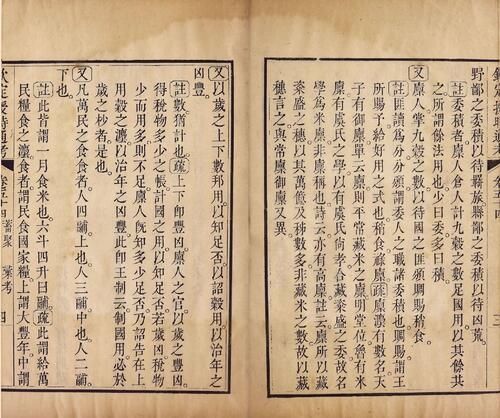 野鄙之委積以待羇旅縣都之委積以待凶荒。
註委積者廩人倉人計九穀之數足國用以其餘共
之所謂餘法用也少曰委多曰積。
又廩人掌九穀之數以待國之匪頒賙賜稍食。
註匪讀為分分頒謂委人之職諸委積也賙賜謂王
所賜予給好用之式也稍食祿廩。疏廩有數名天
子有御廩單云廩則平常藏米之廩明堂位魯有米
廩有虞氏之學以有虞氏尚孝合藏粢盛之委故名
學為米廩非廩稱也詩云亦有高廩註云廩所以藏
粢盛之穗以其萬億及秭數多非藏米之數故以藏
穗言之與常廩御廩又異。
又以歲之上下數邦用以知足否以詔穀用以治年之
凶豐。
註數猶計也。疏上下即豐凶廩人之官以歲之豐凶
得稅物多少之帳計國之用以知足否若歲凶稅物
少而用多則不足廩人旣知多少足否乃詔告在上
用穀之灋以治年之凶豐此即王制云制國用必於
歲之杪者是也。
又凡萬民之食食者人四鬴上也人三鬴中也人二鬴
下也。
註此皆謂一月食米也六斗四升曰鬴。疏此謂給萬
民糧食之灋食者謂民食國家糧上謂大豐年中謂
欽定授時通考 卷五十四 蓄聚 彙考 四